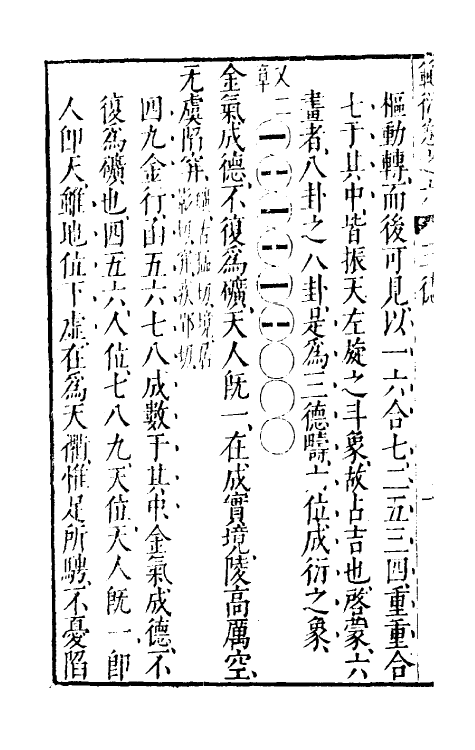 三德
樞動轉、而後可見、以一六合七二五三四重重合
七于其中、皆振天左旋之斗象、故占吉也、啓蒙、六
畫者、八卦之八卦、是爲三德疇、六位成衍之象、
又二章
金氣成德、不復爲礦、天人旣一、在成實境、陵高厲空、
无虞陷穽、礦古猛切境居影切穽疾郢切
四九金行、由五六七八成數于其中、金氣成德、不
復爲礦也、四五六、人位、七八九、天位、天人旣一、卽
人卽天、雖地位下虛、在爲天衢、惟足所騁、不憂陷